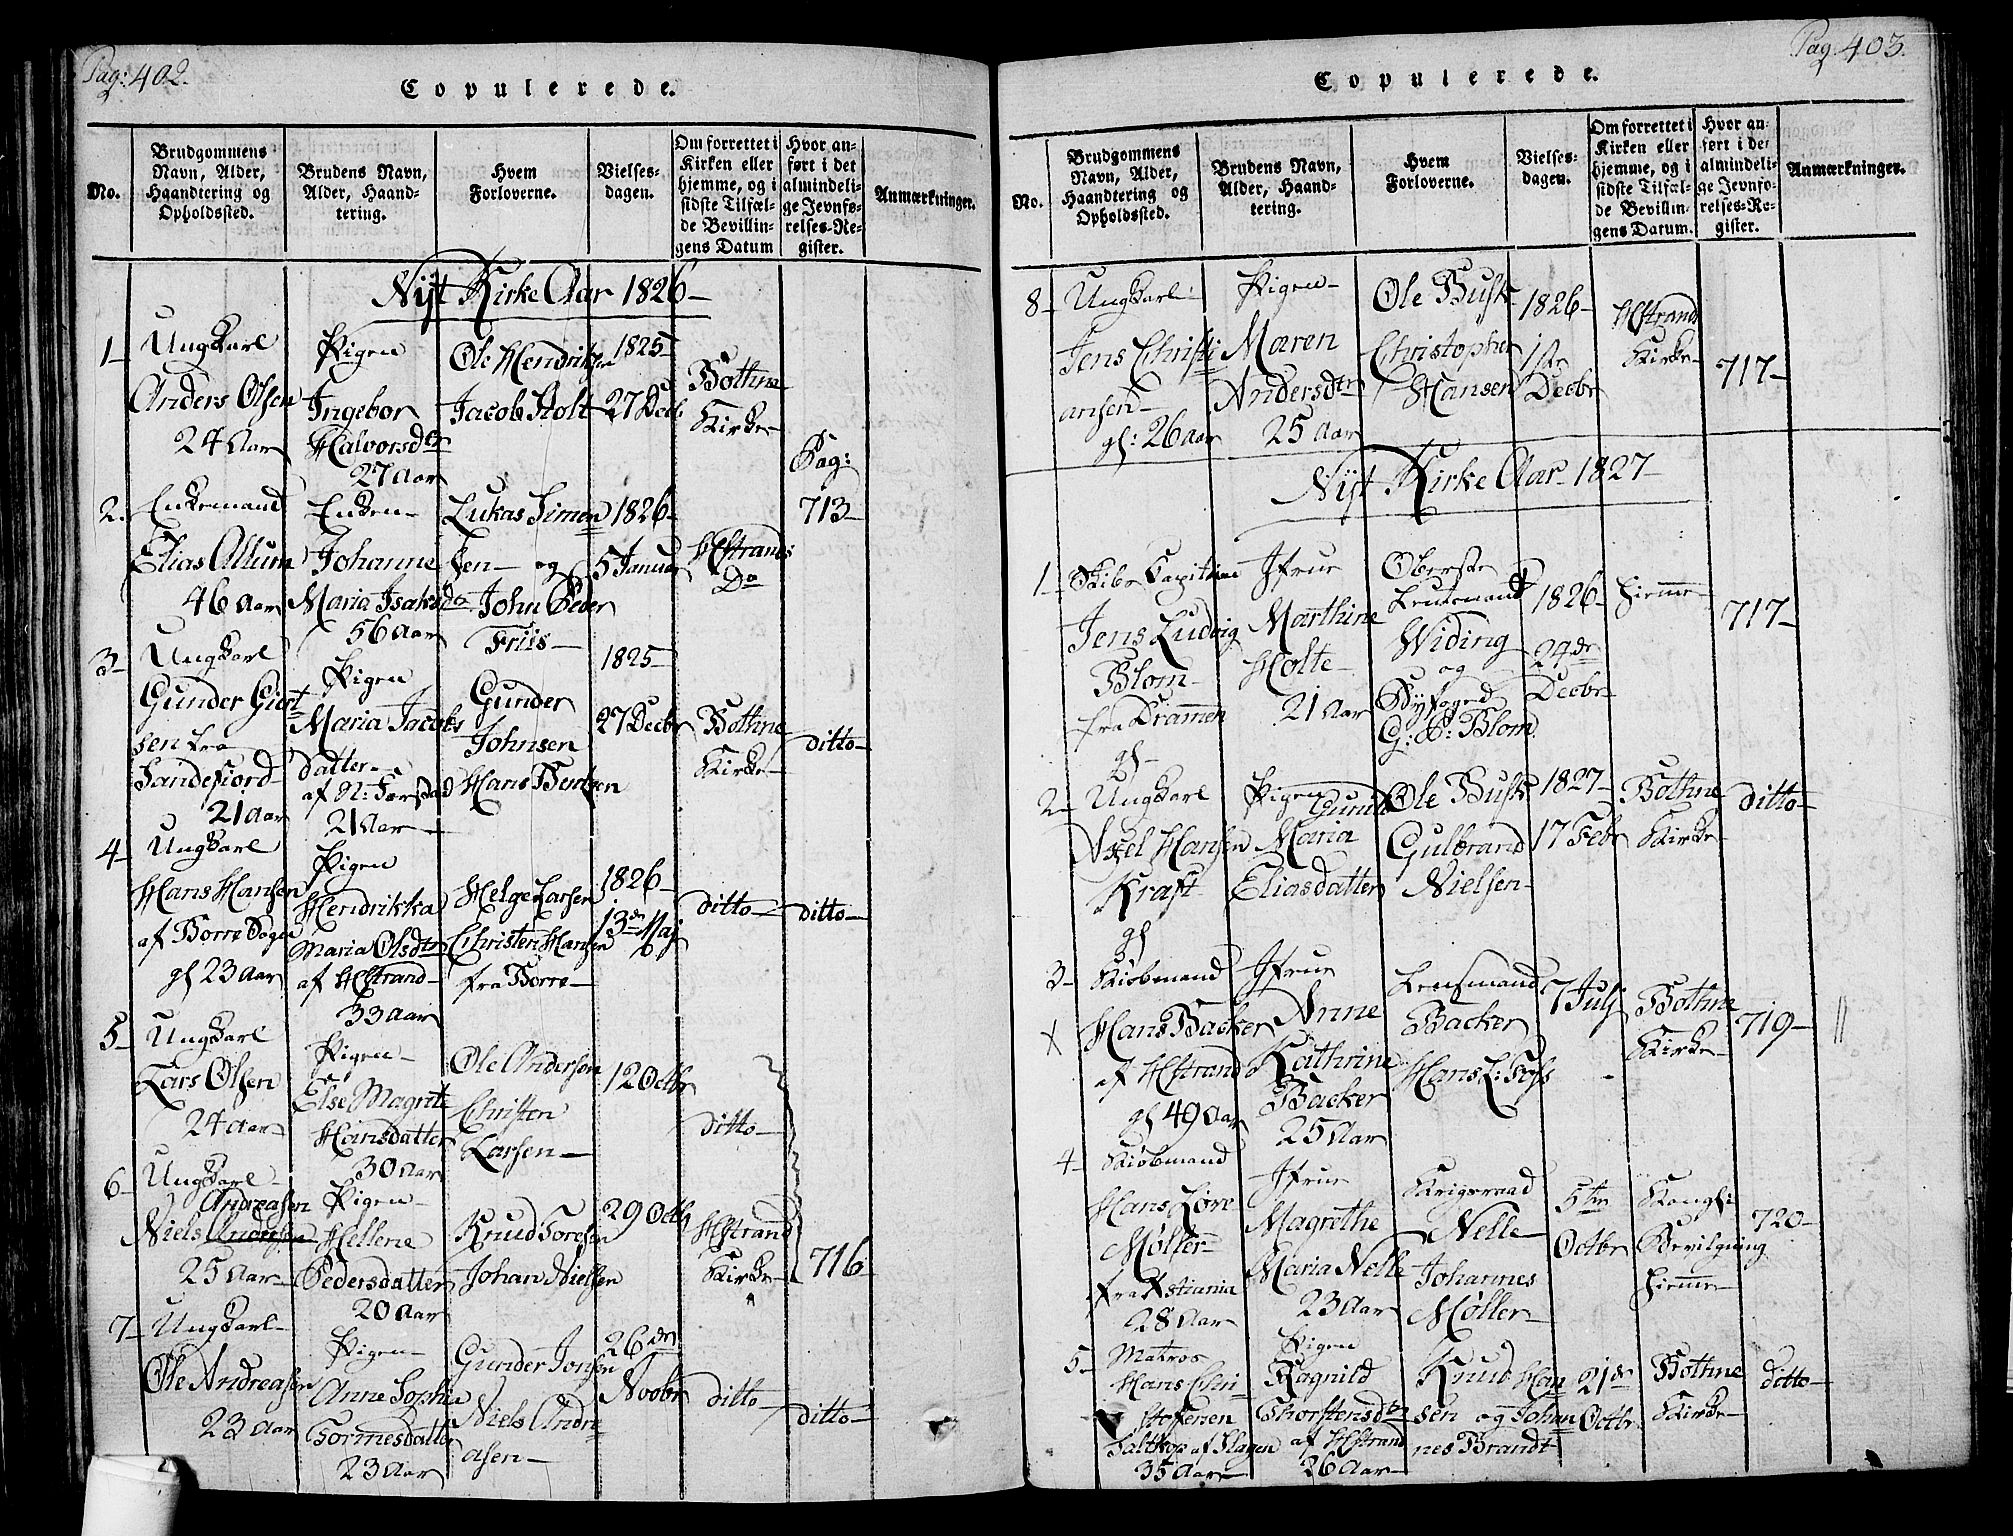 Pag: 402.
Copulerede.
No.
Brudgommens Navn, Alder, Haandtering og Opholdssted.
Brudens Navn, Alder, Haandtering.
Hvem Forloverne.
Vielsesdagen.
Om forrettet i Kirken eller hjemme, og i sidste Tilfælde Bevillingens Datum
Hvor anført i det almindelige Jevnførelses-Register.
Anmærkninger.
Nyt Kirke Aar 1826
1
Ungkarl
Anders Olsen
24 Aar
Pigen
Ingebor
Halvorsdr
27 Aar
Ole Hendriksen
Jacob Holt
1825
27 Decb
Bothne
Kirke
Pag:
713
2.
Enkemand
Elias Allum
46 Aar
Enken
Johanne
Maria Isaksdr
56 Aar
Lukas Simon
sen og
John Peder
Friis
1826
5 Januar
HStrands
Do
3
Ungkarl
Gunder Giert
sen fra
Sandefiord
21 Aar
Pigen
Maria Jacobs
datter
af N: Forstad
21 Aar
Gunder
Johnsen
Hans Bentzen
1825
27 Decbr
Bothne
Kirke
ditto
4
Ungkarl
Hans Hansen
af Borre Sogn
gl 23 Aar
Pigen
Hendrikka
Maria Olsdtr
af HStrand
33 Aar
Helge Larsen
Christen Hansen
fra Borre
1826
13de Maj
ditto
ditto
5
Ungkarl
Lars Olsen
24 Aar
Pigen
Else Magrete
Hansdatter
30 Aar
Ole Anderson
Christen
Larsen
12 Octbr
ditto
6
Ungkarl
Andreasen
Niels Andersen
25 Aar
Pigen
Hellene
Pedersdatter
20 Aar
Knud Foresen
Johan Nielsen
29 Octb
HStrand
Kirke
716
7
Ungkarl
Ole Andreasen
23 Aar
Pigen
Anne Sophia
Tormesdatter
23 Aar
Gunder Jonsen
Niels Andre
asen
26de
Novbr
ditto
ditto
Pag. 403.
Copulerede.
No.
Brudgommens Navn, Alder, Haandtering og Opholdssted.
Brudens Navn, Alder, Haandtering.
Hvem Forloverne.
Vielsesdagen.
Om forrettet i Kirken eller hjemme, og i sidste Tilfælde Bevillingens Datum.
Hvor anført i det almindelige Jevnførelses-Register.
Anmærkninger.
8
Ungkarl
Jens Christi
ansen
gl: 26 Aar
Pigen
Maren
Andersdtr
25 Aar
Ole Busk
Christopher
Hansen
1826
1ste
Decbr
HStrand
Kirke
717
Nyt Kirke Aar 1827
1
Skibs Capitaine
Jens Ludvig
Blom
fra Dramen
gl
Jfrue
Marthine
Holte
21 Aar
Oberste
Leutenand
Widing
og
Byfoged
G: P: Blom
1826
29de
Decbr
hiemme
717
2
Ungkarl
Axel Hansen
Kraft
gl
Pigen Gund
Maria
Eliasdatter
Ole Busk
Gulbrand
Nielsen
1827
17 Febr
Bothne
Kirke
ditto
3
X
Kiøbmand
Hans Backer
af HStrand
gl 49 Aar
Jfrue
Anne
Kathrine
Backer
25 Aar
Lensmand
Backer
Hans L: Foss
7 Julj
Bothne
Kirke
719
4
Kiøbmand
Hans Løve
Møller
fra Xstiania
28 Aar
Jfrue
Magrethe
Maria Nelle
23 Aar
Krigsraad
Nelle
Johannes
Møller
5te
Octbr
Konglig
Bevilgning
hiemme
720
5
Matros
Hans Chri
stofersen
Saltkop af Slagen
35 Aar
Pigen
Ragnild
Thorstensdtr
af HStrand
26 Aar
Knud Han
sen og Johan
nes Brandt
21de
Octbr
Bothne
Kirke
ditto